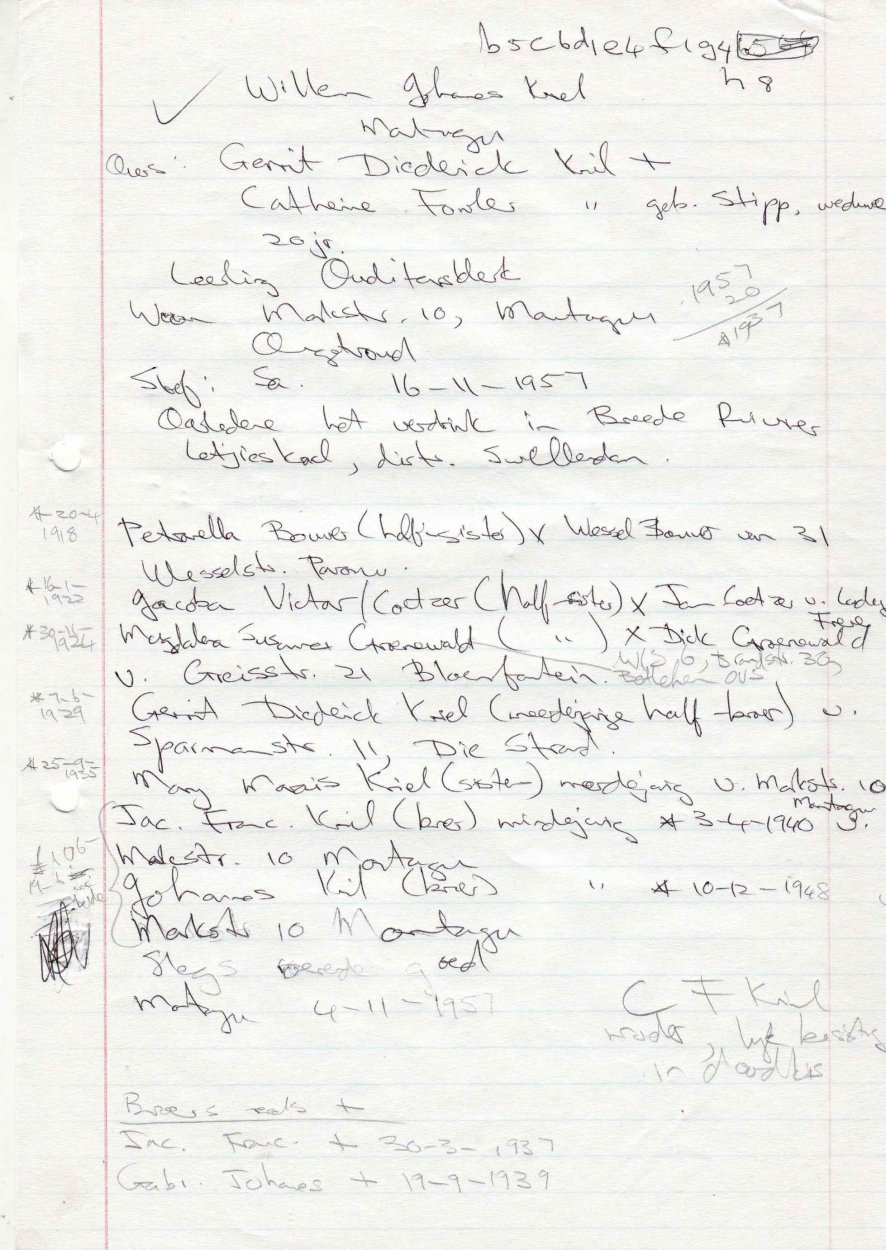 b5c6d1e4f1g4
h8
Willem Johannes Kriel
Montagu
Ouers: Gerrit Diederick Kriel +
Catherine Fowler " geb. Stipp, weduwe
20 jr.
Leerling Ouditeursklerk
Woon Markstr. 10, Montagu
Ongetroud
1957
20
*1937
Sterf: Sa. 16-11-1957
Oorledene het verdrink in Breede Rivier
distr. Swellendam.
*20-4
1918
Petronella Bouwer (half-sister) x Wessel Bouwer van 31
Wesselstr. Parow.
*16-1-
1922
Jacoba Victor/Coetzer (half-sister) x Jan Coetzer v. Lady
Frere
1924
Magdalena Susanna Groenewald ( " ) x Dick Groenewald
v. Greisstr. 21 Bloemfontein.
Bethlehem OVS
*7-6-
1929
Gerrit Diederick Kriel (meerderjarige half-broer) v.
Sparmanstr. 11, Die Strand.
*25-9-
1935
Mary Marais Kriel (sister) meerderjarig v. Markstr. 10
Montagu
Jac. Franc. Kriel (broer) minderjarig * 3-4-1940 v.
Markstr. 10 Montagu
Johannes Kriel (broer) " * 10-12-1948
Markstr 10 Montagu
Slegs roerende goed
Montagu 4-11-1957
C F Kriel
moeder,
in
Broers reeds +
Jac. Franc. + 30-3-1937
Gabr. Johannes + 19-9-1939